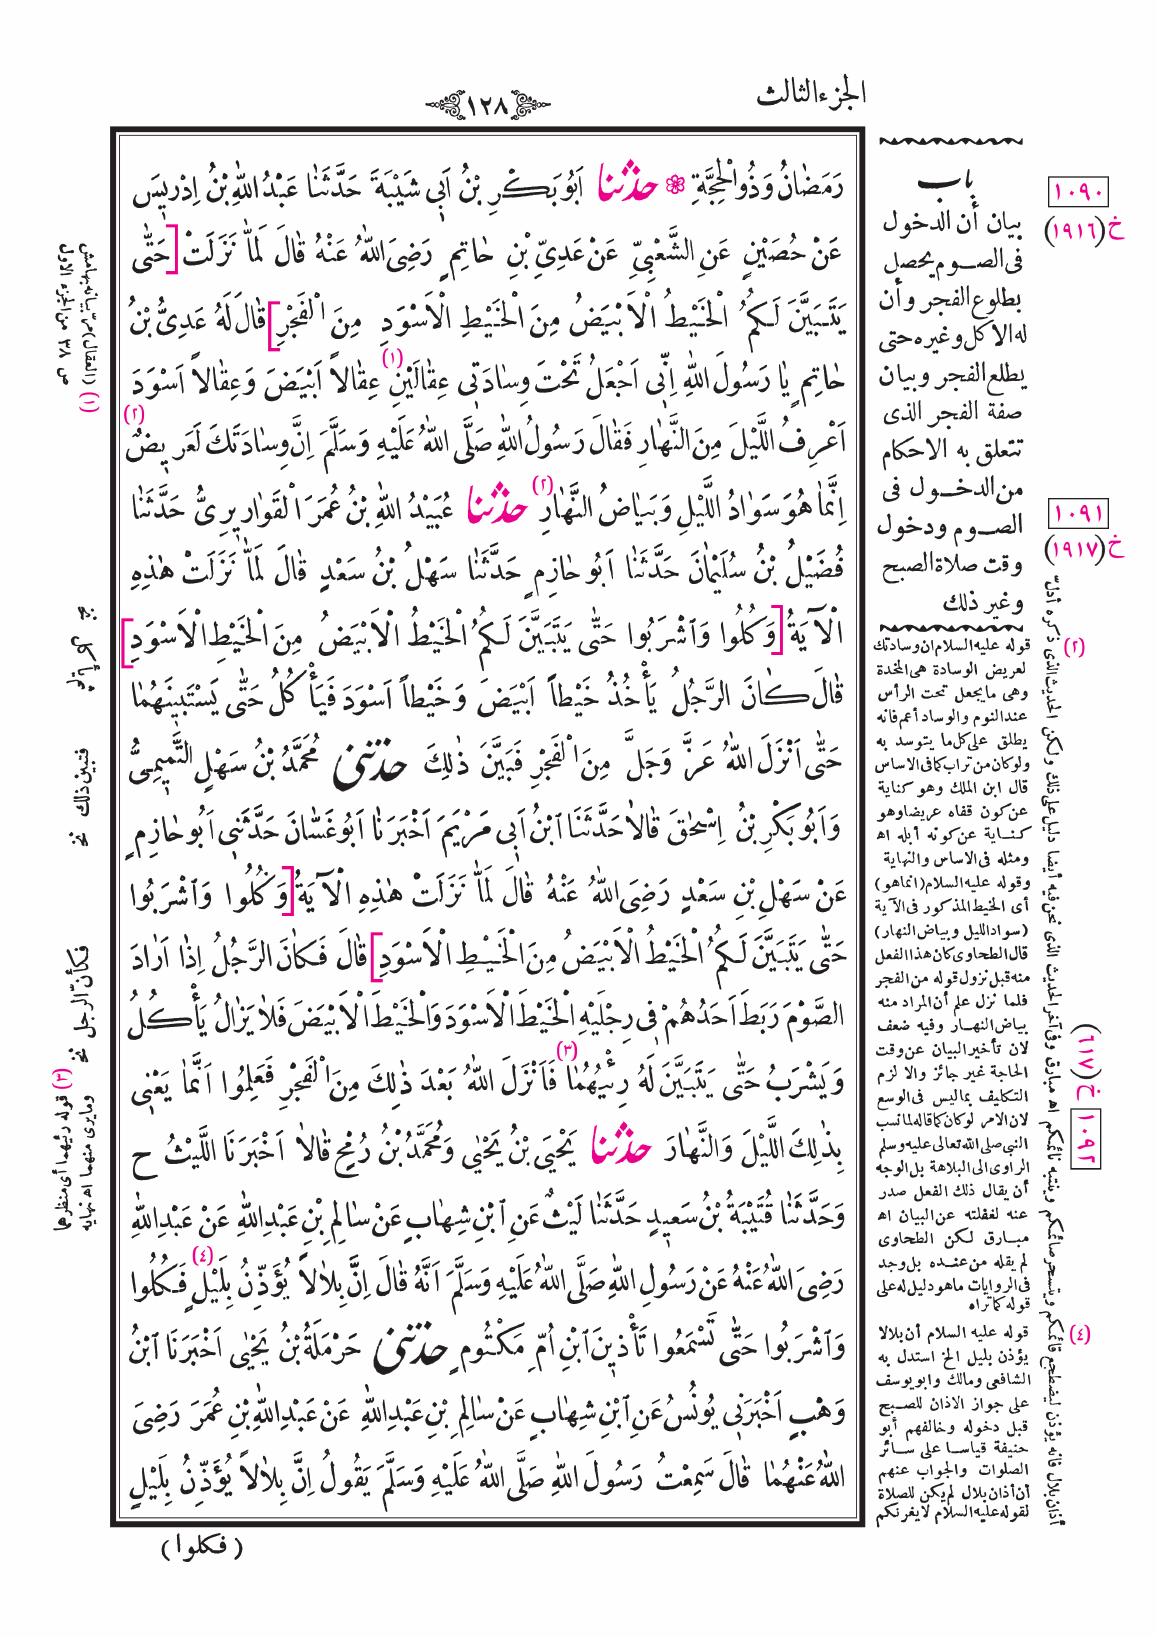 الجزء الثالث
١٢٨
رَمَضَانُ وَذُو الْحِجَّةِ ❁ حدثنا اَبُو بَكْرِ بْنُ اَبِي شَيْبَةَ حَدَّثَنَا عَبْدُ اللّٰهِ بْنُ اِدْرِيسَ
عَنْ حُصَيْنٍ عَنِ الشَّعْبِيِّ عَنْ عَدِيِّ بْنِ حَاتِمٍ رَضِيَ اللّٰهُ عَنْهُ قَالَ لَمَّا نَزَلَتْ [حَتّٰى
يَتَبَيَّنَ لَكُمُ الْخَيْطُ الْاَبْيَضُ مِنَ الْخَيْطِ الْاَسْوَدِ مِنَ الْفَجْرِ] قَالَ لَهُ عَدِيُّ بْنُ
حَاتِمٍ يَا رَسُولَ اللّٰهِ اِنِّي اَجْعَلُ تَحْتَ وِسَادَتِي عِقَالَيْنِ (١) عِقَالاً اَبْيَضَ وَعِقَالاً اَسْوَدَ
اَعْرِفُ اللَّيْلَ مِنَ النَّهَارِ فَقَالَ رَسُولُ اللّٰهِ صَلَّى اللّٰهُ عَلَيْهِ وَسَلَّمَ اِنَّ وِسَادَتَكَ لَعَرِيضٌ (٢)
اِنَّمَا هُوَ سَوَادُ اللَّيْلِ وَبَيَاضُ النَّهَارِ (٢) حدثنا عُبَيْدُ اللّٰهِ بْنُ عُمَرَ الْقَوَارِيرِيُّ حَدَّثَنَا
فُضَيْلُ بْنُ سُلَيْمَانَ حَدَّثَنَا اَبُو حَازِمٍ حَدَّثَنَا سَهْلُ بْنُ سَعْدٍ قَالَ لَمَّا نَزَلَتْ هٰذِهِ
الْآيَةُ [وَكُلُوا وَاشْرَبُوا حَتّٰى يَتَبَيَّنَ لَكُمُ الْخَيْطُ الْاَبْيَضُ مِنَ الْخَيْطِ الْاَسْوَدِ]
قَالَ كَانَ الرَّجُلُ يَأْخُذُ خَيْطاً اَبْيَضَ وَخَيْطاً اَسْوَدَ فَيَأْكُلُ حَتّٰى يَسْتَبِينَهُمَا
حَتّٰى اَنْزَلَ اللّٰهُ عَزَّ وَجَلَّ مِنَ الْفَجْرِ فَبَيَّنَ ذٰلِكَ حدثني مُحَمَّدُ بْنُ سَهْلٍ التَّمِيمِيُّ
وَاَبُو بَكْرِ بْنُ اِسْحٰقَ قَالَا حَدَّثَنَا ابْنُ اَبِي مَرْيَمَ اَخْبَرَنَا اَبُو غَسَّانَ حَدَّثَنِي اَبُو حَازِمٍ
عَنْ سَهْلِ بْنِ سَعْدٍ رَضِيَ اللّٰهُ عَنْهُ قَالَ لَمَّا نَزَلَتْ هٰذِهِ الْآيَةُ [وَكُلُوا وَاشْرَبُوا
حَتّٰى يَتَبَيَّنَ لَكُمُ الْخَيْطُ الْاَبْيَضُ مِنَ الْخَيْطِ الْاَسْوَدِ] قَالَ فَكَانَ الرَّجُلُ اِذَا اَرَادَ
الصَّوْمَ رَبَطَ اَحَدُهُمْ فِي رِجْلَيْهِ الْخَيْطَ الْاَسْوَدَ وَالْخَيْطَ الْاَبْيَضَ فَلَا يَزَالُ يَأْكُلُ
وَيَشْرَبُ حَتّٰى يَتَبَيَّنَ لَهُ رِئْيُهُمَا (٣) فَاَنْزَلَ اللّٰهُ بَعْدَ ذٰلِكَ مِنَ الْفَجْرِ فَعَلِمُوا اَنَّمَا يَعْنِي
بِذٰلِكَ اللَّيْلَ وَالنَّهَارَ حدثنا يَحْيَى بْنُ يَحْيٰى وَمُحَمَّدُ بْنُ رُمْحٍ قَالَا اَخْبَرَنَا اللَّيْثُ ح
وَحَدَّثَنَا قُتَيْبَةُ بْنُ سَعِيدٍ حَدَّثَنَا لَيْثٌ عَنِ ابْنِ شِهَابٍ عَنْ سَالِمِ بْنِ عَبْدِ اللّٰهِ عَنْ عَبْدِ اللّٰهِ
رَضِيَ اللّٰهُ عَنْهُ عَنْ رَسُولِ اللّٰهِ صَلَّى اللّٰهُ عَلَيْهِ وَسَلَّمَ اَنَّهُ قَالَ اِنَّ بِلَالاً يُؤَذِّنُ بِلَيْلٍ (٤) فَكُلُوا
وَاشْرَبُوا حَتّٰى تَسْمَعُوا تَأْذِينَ ابْنِ اُمِّ مَكْتُومٍ حدثني حَرْمَلَةُ بْنُ يَحْيٰى اَخْبَرَنَا ابْنُ
وَهْبٍ اَخْبَرَنِي يُونُسُ عَنِ ابْنِ شِهَابٍ عَنْ سَالِمِ بْنِ عَبْدِ اللّٰهِ عَنْ عَبْدِ اللّٰهِ بْنِ عُمَرَ رَضِيَ
اللّٰهُ عَنْهُمَا قَالَ سَمِعْتُ رَسُولَ اللّٰهِ صَلَّى اللّٰهُ عَلَيْهِ وَسَلَّمَ يَقُولُ اِنَّ بِلَالاً يُؤَذِّنُ بِلَيْلٍ
( فكلوا )
باب
بيان أن الدخول
فى الصوم يحصل
بطلوع الفجر وأن
له الاكل وغيره حتى
يطلع الفجر وبيان
صفة الفجر الذى
تتعلق به الاحكام
من الدخول فى
الصوم ودخول
وقت صلاة الصبح
وغير ذلك
١٠٩٠
خ (١٩١٦)
١٠٩١
خ (١٩١٧)
١٠٩٢ خ (٦١٧)
(٢) قوله عليه السلام ان وسادتك
لعريض الوسادة هى المخدة
وهى ما يجعل تحت الرأس
عند النوم والوساد أعم فانه
يطلق على كل ما يتوسد به
ولو كان من تراب كما فى الاساس
قال ابن الملك وهو كناية
عن كون قفاه عريضا وهو
كناية عن كونه أبله اه
ومثله فى الاساس والنهاية
وقوله عليه السلام (انما هو)
أى الخيط المذكور فى الآية
(سواد الليل وبياض النهار)
قال الطحاوى كان هذا الفعل
منه قبل نزول قوله من الفجر
فلما نزل علم أن المراد منه
بياض النهار وفيه ضعف
لان تأخير البيان عن وقت
الحاجة غير جائز والا لزم
التكليف بما ليس فى الوسع
لان الامر لو كان كما قاله لما نسب
النبى صلى الله تعالى عليه وسلم
الراوى الى البلاهة بل الوجه
أن يقال ذلك الفعل صدر
عنه لغفلته عن البيان اه
مبارق لكن الطحاوى
لم يقله من عنده بل وجد
فى الروايات ما هو دليل له على
قوله كما تراه
(٤) قوله عليه السلام أن بلالا
يؤذن بليل الخ استدل به
الشافعى ومالك وابو يوسف
على جواز الاذان للصبح
قبل دخوله وخالفهم أبو
حنيفة قياسا على سائر
الصلوات والجواب عنهم
أن أذان بلال لم يكن للصلاة
لقوله عليه السلام لا يغرنكم
أذان بلال فانه يؤذن ليضطجع قائمكم ويتسحر صائمكم وينتبه نائمكم اه مبارق وفى آخر الحديث الذى نحن فيه أيضا دليل على ذلك ولكن الحديث الذى ذكره أدلّ
(١) (العقال) مرّ بيانه بهامش
ص ٣٨ من الجزء الاول
فبين ذلك نخ
فكأنّ الرجل نخ
(٣) قوله رئيهما أى منظرهما
وما يرى منهما اه نهايه